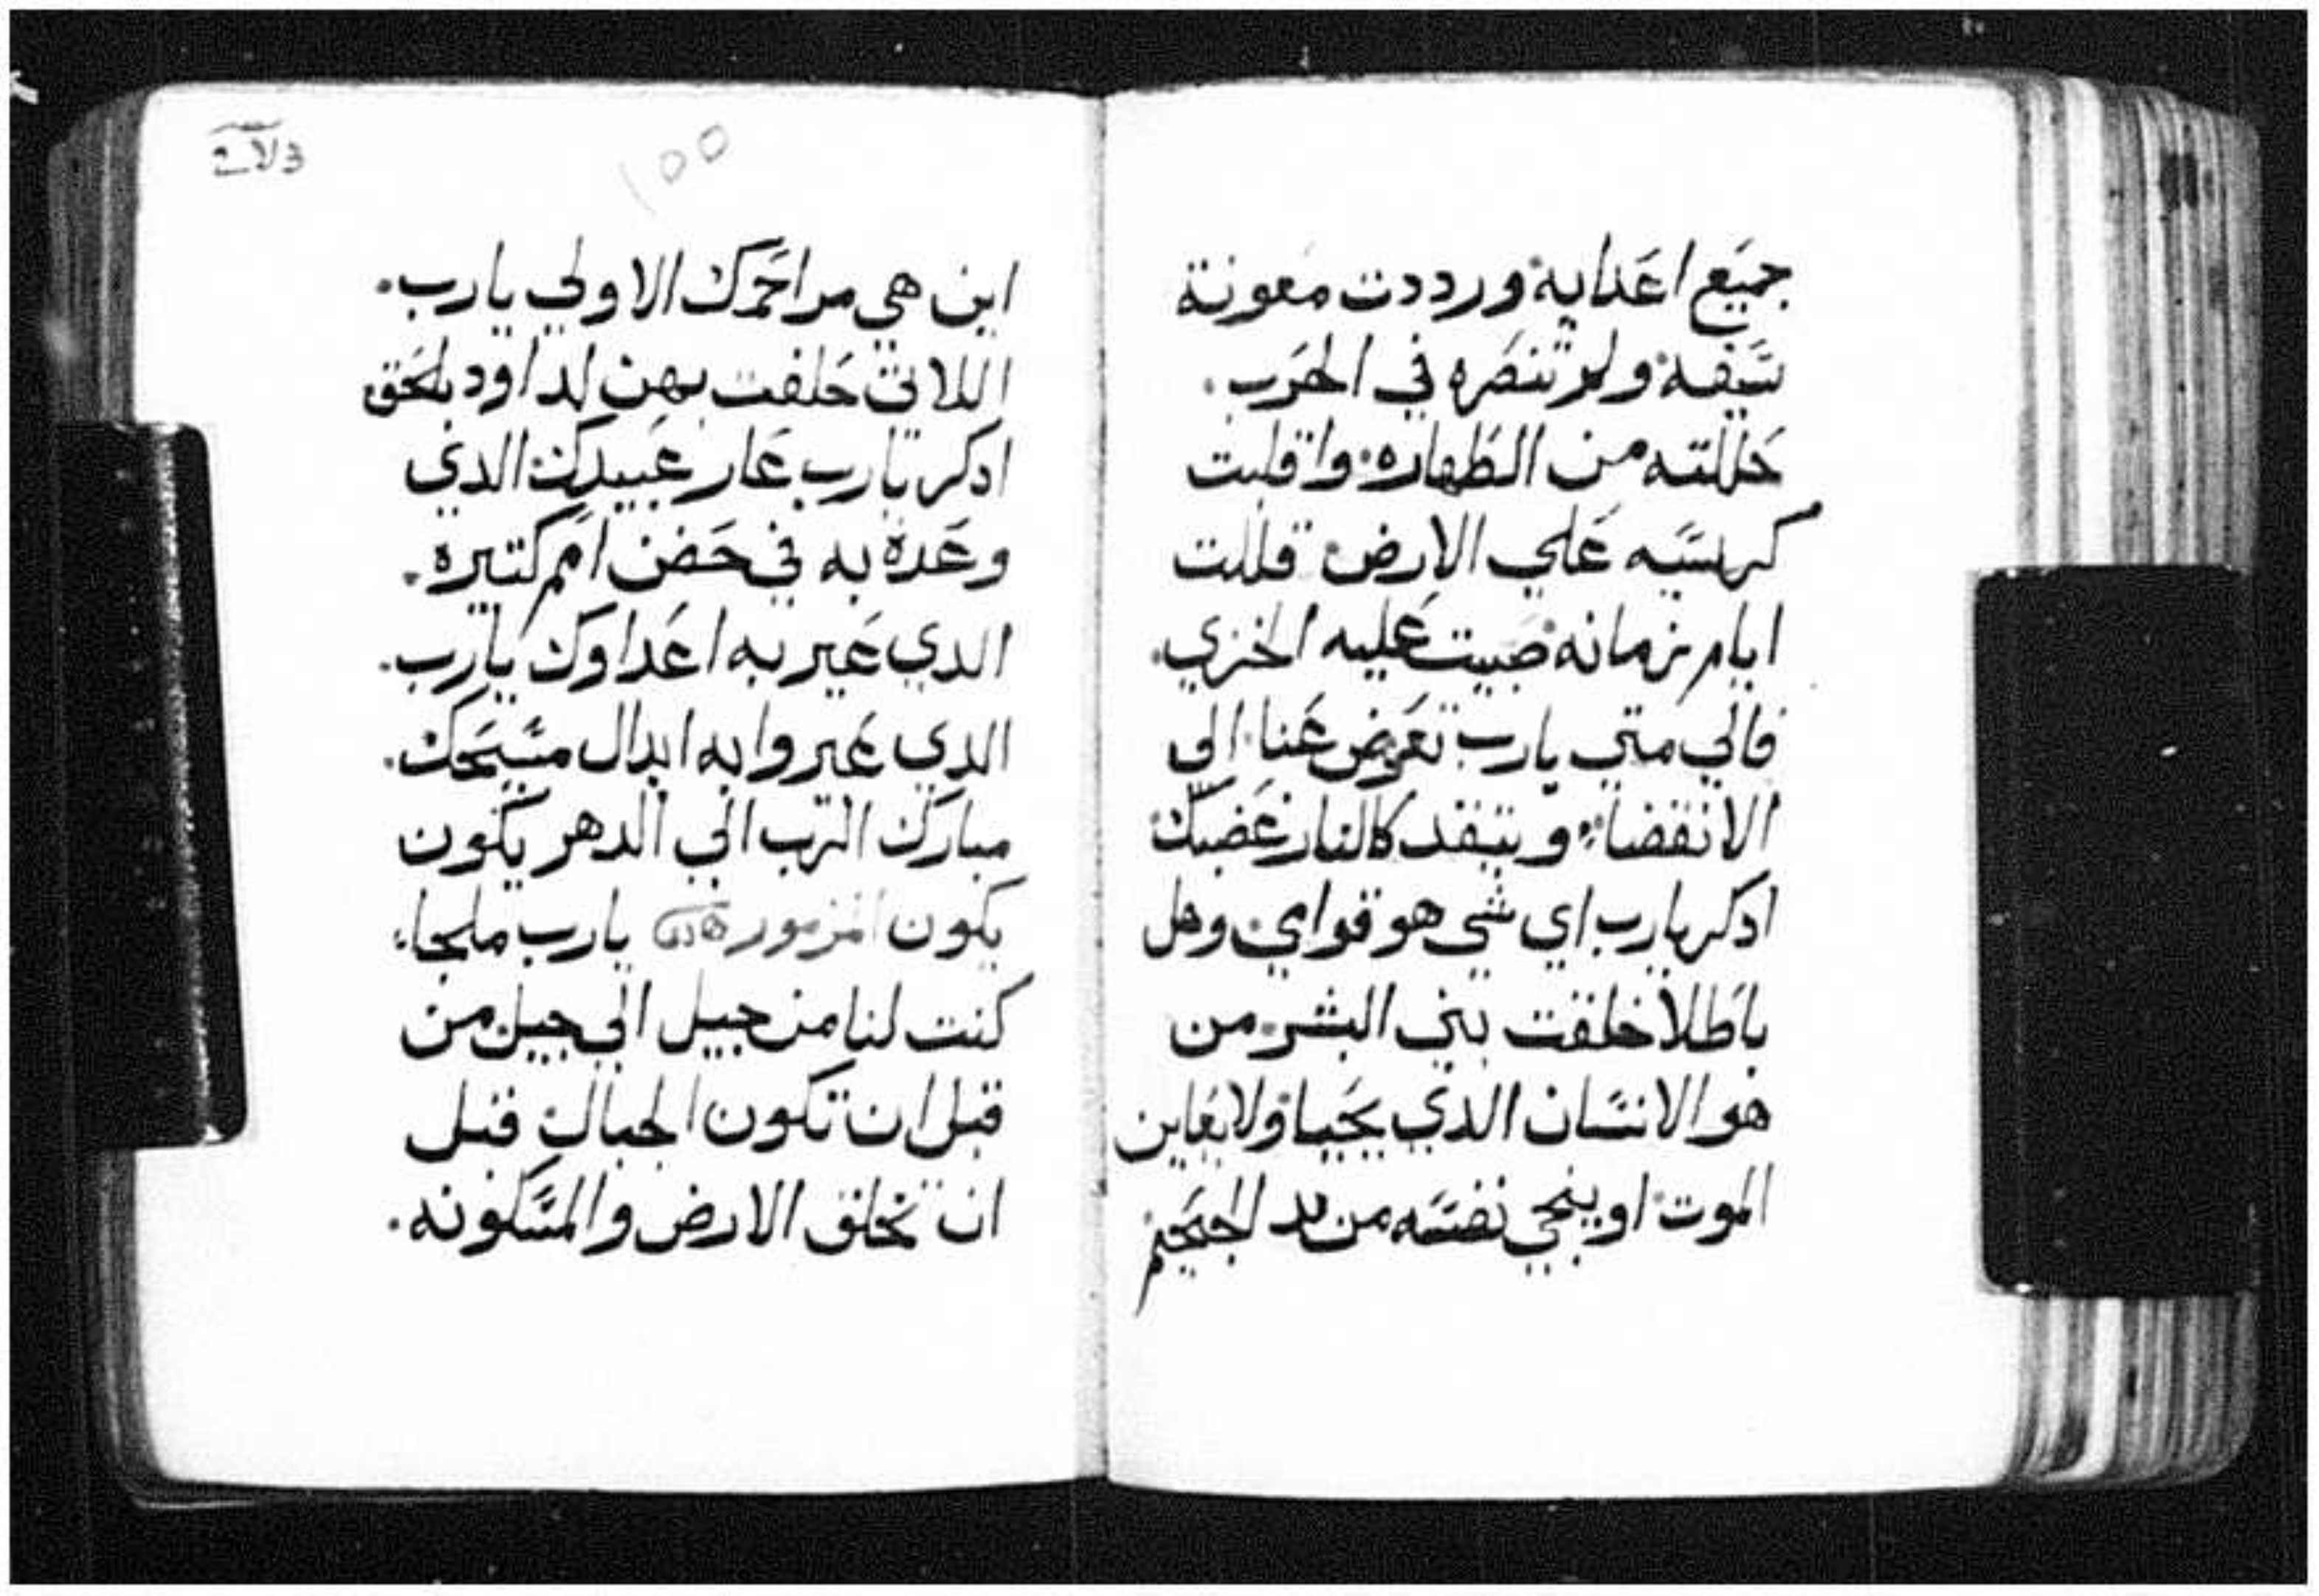 جميع اعدايه ورددت معونة
سيفه ولم تنصره في الحرب.
حللته من الطهاره واقلبت
كرسيه علي الارض قللت
ايام زمانه صبيت عليه الخزي.
فالي متي يارب تعرض عنا الي
الانقضاء ويتقد كالنار غضبك
ادكر يارب اي شي هو قوامي وهل
باطلا خلقت بني البشر من
هو الانسان الدي يحيا ولا يعاين
الموت او ينجي نفسه من يد الجحيم
100
اين هي مراحمك الاولي يارب.
اللاتي حلفت بهن لداود بالحق
ادكر يارب عار عبيدك الدي
وعده به في حضن امم كتيره.
الدي عير به اعداوك يارب.
الدي عيروا به ابدال مسيحك.
مبارك الرب الي الدهر يكون
يكون المزمور يارب ملجاء
كنت لنا من جيل الي جيل من
قبل ان تكون الجبال قبل
ان تخلق الارض والمسكونه.